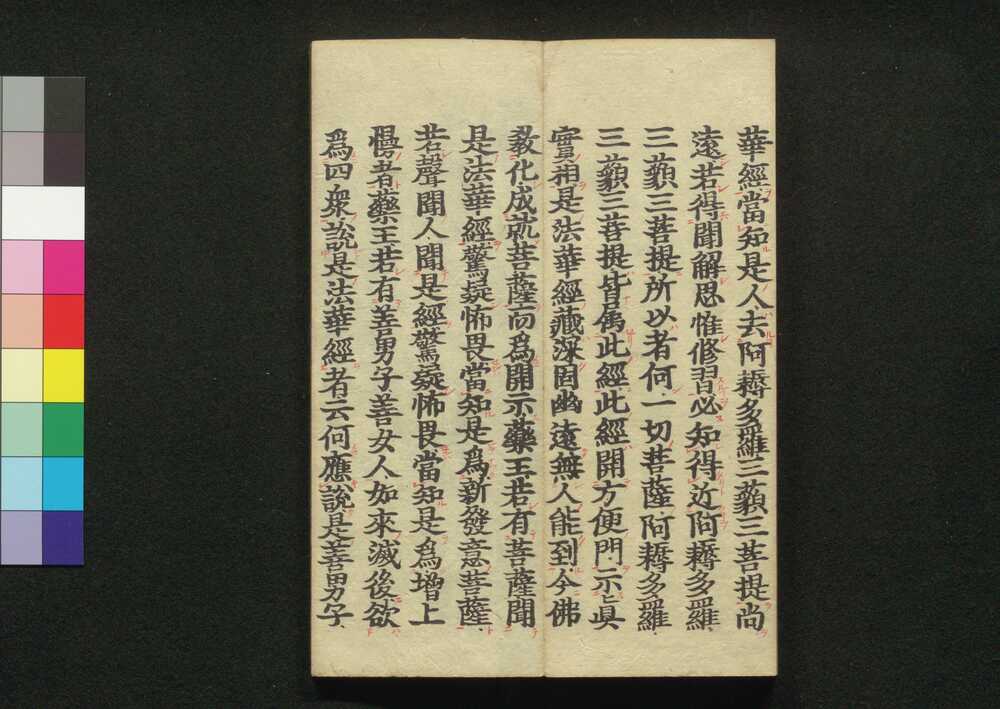 華經當知是人去阿耨多羅三藐三菩提尚
遠若得聞解思惟修習必知得近阿耨多羅
三藐三菩提所以者何一切菩薩阿耨多羅
三藐三菩提皆屬此經此經開方便門示眞
實相是法華經藏深固幽遠無人能到今佛
教化成就菩薩而爲開示藥王若有菩薩聞
是法華經驚疑怖畏當知是爲新發意菩薩
若聲聞人聞是經驚疑怖畏當知是爲增上
慢者藥王若有善男子善女人如來滅後欲
爲四衆說是法華經者云何應說是善男子